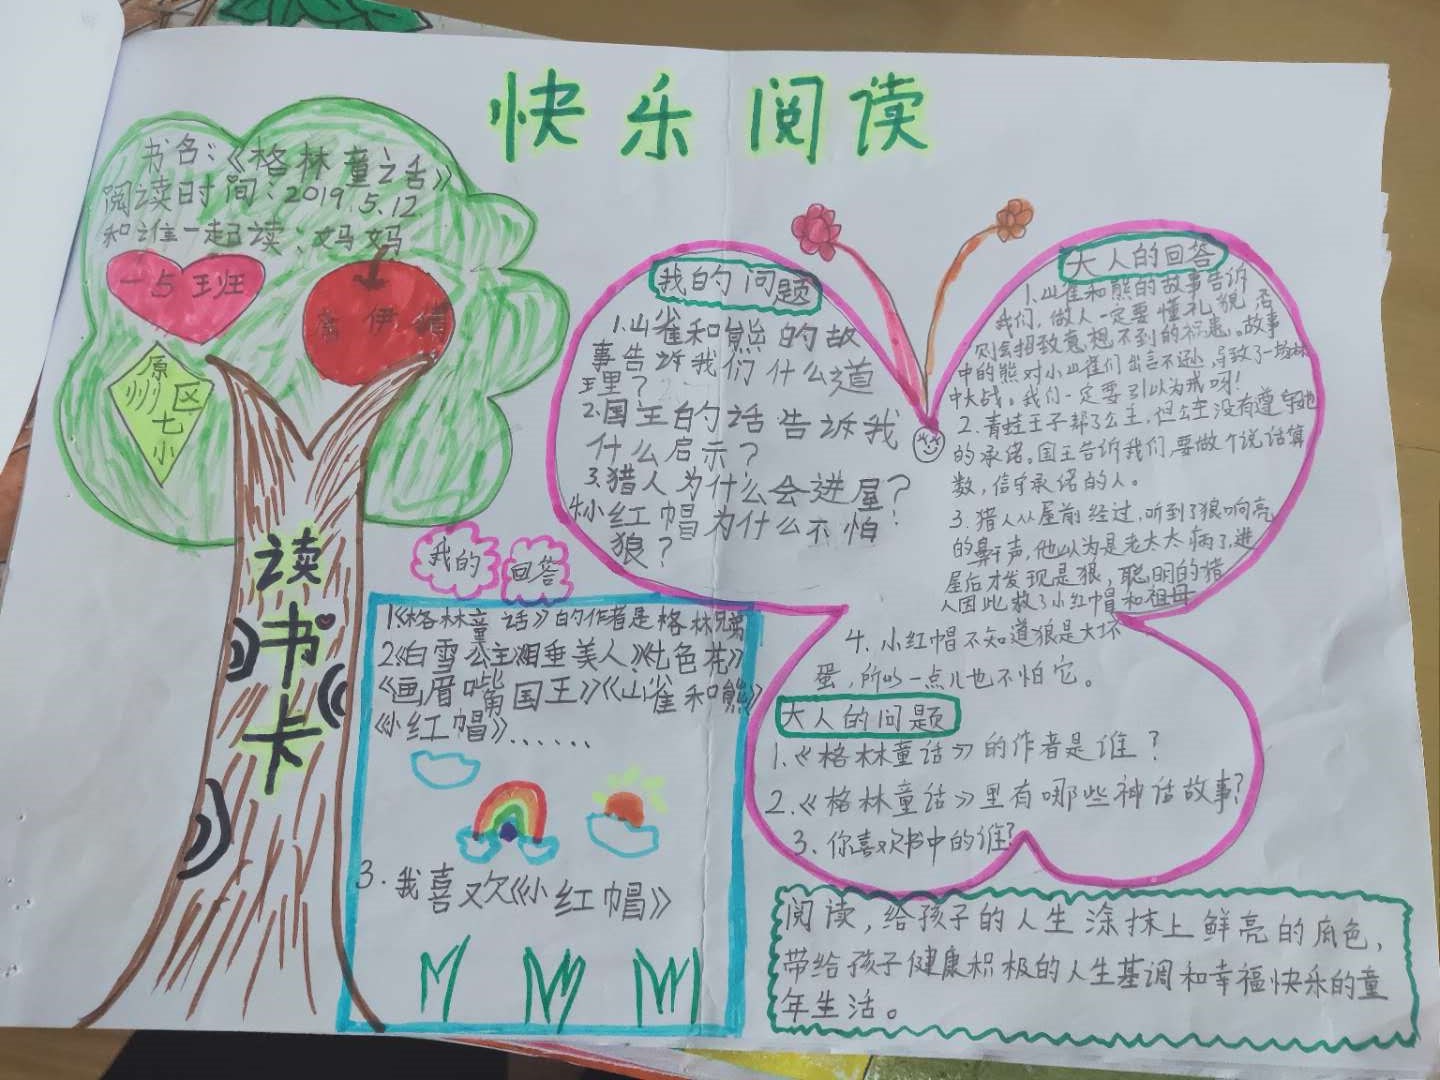 快乐阅读
书名：《格林童话》
阅读时间：2019.5.12
和谁一起读：妈妈
一点班
伊
原州区七小
读书卡
我的问题
1.山雀和熊的故
事告诉我们什么道
理？
2.国王的话告诉我
什么启示？
3.猎人为什么会进屋？
4.小红帽为什么不怕
狼？
大人的回答
1.山雀和熊的故事告诉
我们，做人一定要懂礼貌，否
则会招致意想不到的祸患。故事
中的熊对小山雀们出言不逊，导致了一场林
中大战。我们一定要引以为戒呀！
2.青蛙王子帮了公主，但公主没有遵守她
的承诺。国王告诉我们，要做个说话算
数，信守承诺的人。
3.猎人从屋前经过，听到了狼响亮
的鼾声，他以为是老太太病了，进
屋后才发现是狼，聪明的猎
人因此救了小红帽和祖母
4.小红帽不知道狼是大坏
蛋，所以一点儿也不怕它。
大人的问题
1.《格林童话》的作者是谁？
2.《格林童话》里有哪些神话故事？
3.你喜欢书中的谁？
我的回答
1.《格林童话》的作者是格林兄弟
2《白雪公主》《睡美人》《七色花》
《画眉嘴国王》《山雀和熊》
《小红帽》......
3.我喜欢《小红帽》
阅读，给孩子的人生涂抹上鲜亮的底色，
带给孩子健康积极的人生基调和幸福快乐的童
年生活。